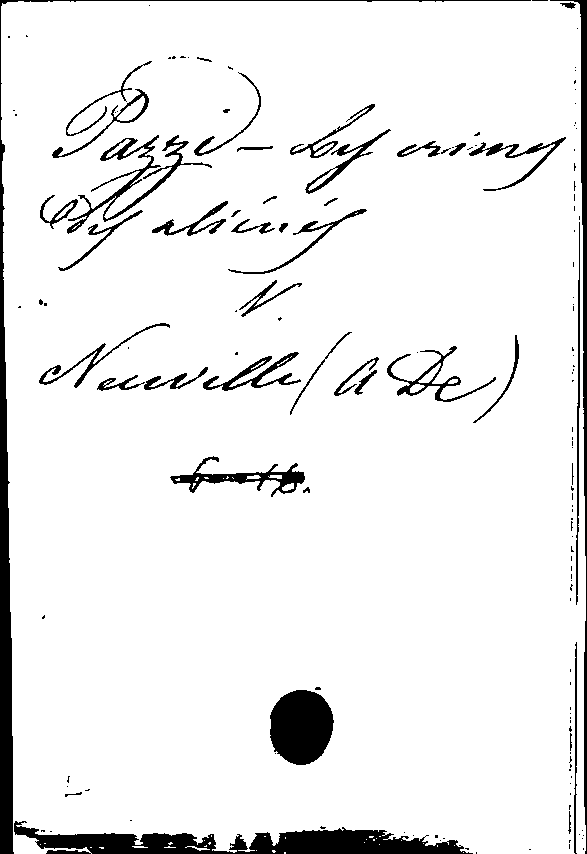 Pazzi - Les crimes
des aliénés
V.
Neuville (A De)